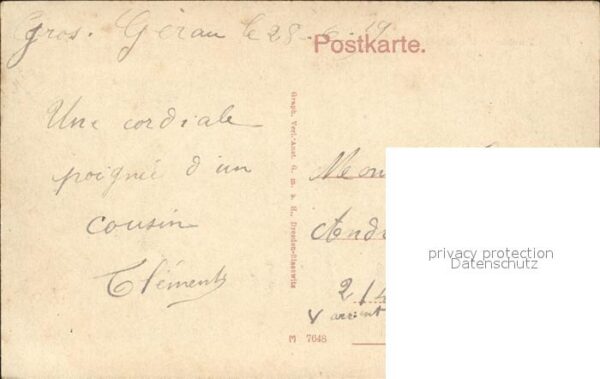 Gros. Gérau le 28-6-19
Postkarte.
Une cordiale
poignée d'un
cousin
Cléments
Graph. Verl.-Anst. G. m. b. H., Dresden-Blasewitz
Mon
André
214
M 7648
privacy protection
Datenschutz